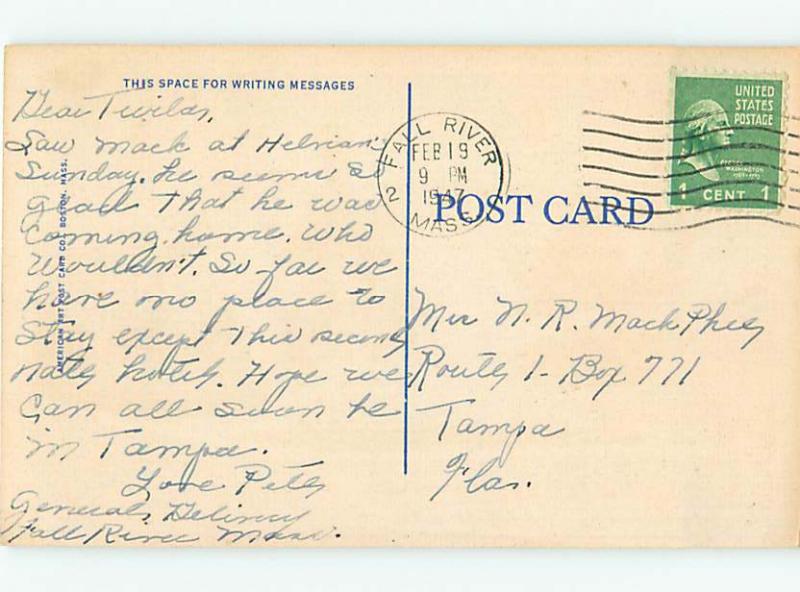 THIS SPACE FOR WRITING MESSAGES
Dear Twila,
Saw Mack at
Sunday. he seems so
glad that he was
coming home. Who
wouldn't. So far we
have no place to
stay except this second
rate hotel. Hope we
can all soon be
in Tampa.
Love Pete
General Delivery
Fall River Mass.
AMERICAN ART POST CARD CO., BOSTON, MASS.
FALL RIVER
FEB 19
9 PM
1947
2
MASS
POST CARD
UNITED
STATES
POSTAGE
GEORGE
WASHINGTON
1 CENT 1
Mrs N. R. MackPhee
Route 1 - Box 771
Tampa
Fla.